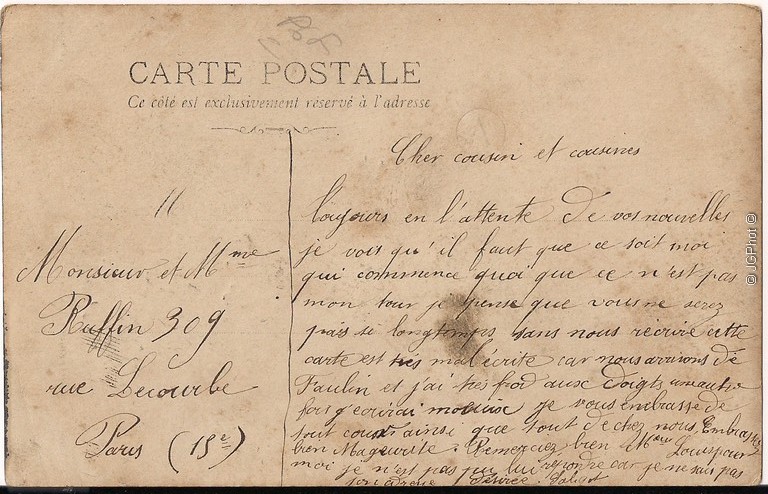 CARTE POSTALE
Ce côté est exclusivement réservé à l'adresse
Cher cousin et cousines
11
Monsieur et Mme
Ruffin 309
rue Lecourbe
Paris (15e)
Toujours en l'attente de vos nouvelles
je vois qu'il faut que ce soit moi
qui commence quoi que ce n'est pas
mon tour je pense que vous ne serez
pais si longtemps sans nous récrire cette
carte est très mal écrite car nous arrivons de
Paulin et j'ai très froid aux doigts une autre
fois j'ecirai mieux je vous embrasse de
tout coeur ainsi que tout de chez nous, Embrassez
bien Magerite. Remerciez bien Mme Louis pour
moi je n'est pas pu lui repondre car je ne sais pas
son adresse Désirée
© JGPhot ©